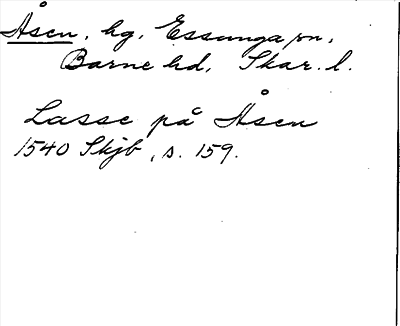 Åsen, hg, Essunga sn,
Barne hd, Skar. l.
Lasse på Åsen
1540 Skjb, s. 159.